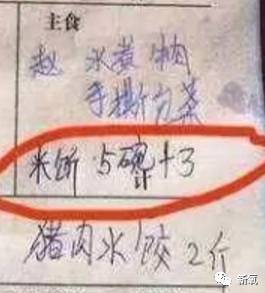 主食
赵 水煮牛肉
手撕包菜
米饭 5碗+3
计
猪肉水饺 2斤
新氧